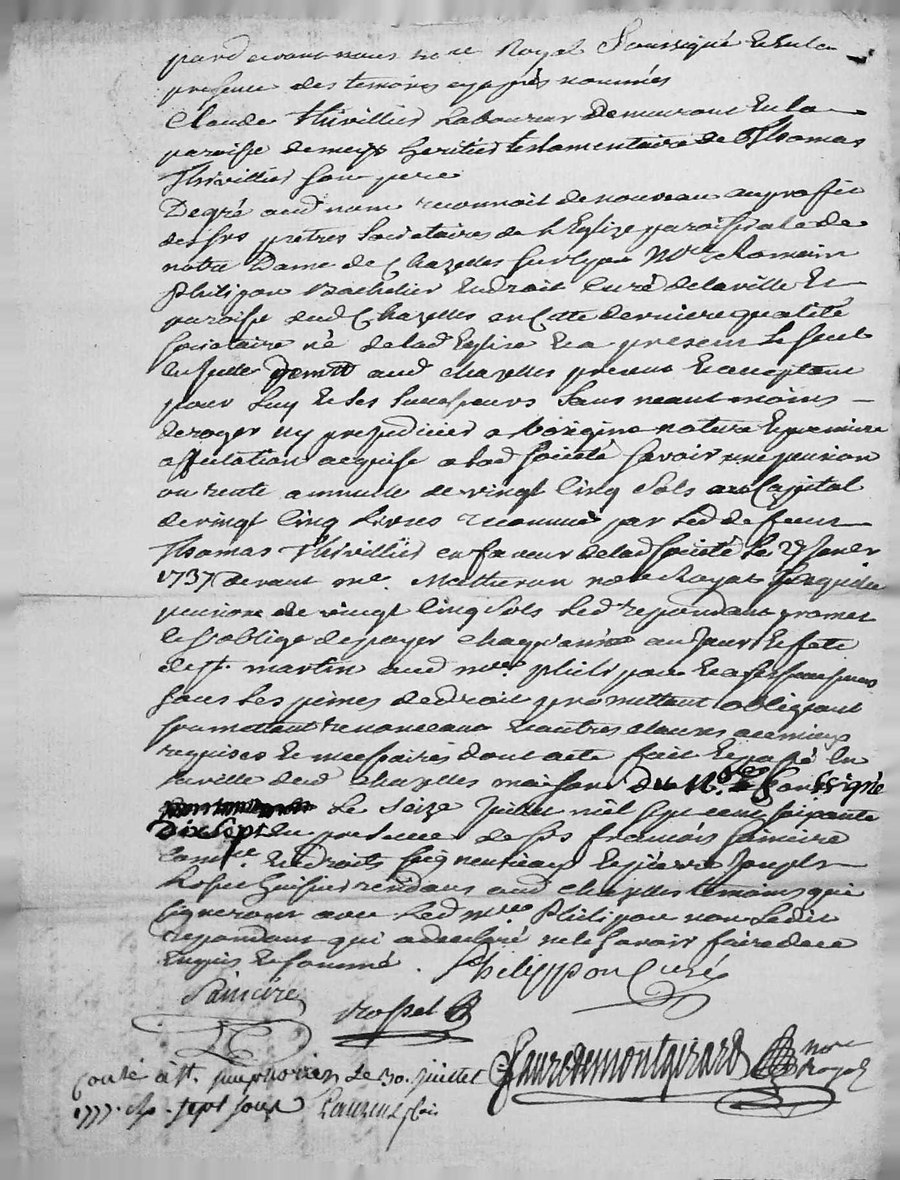 pardevant nous no.re Royal Soussigné Et en la
presence des temoins cy après nommés
Claude Thivillier Laboureur Demeurant En la
paroisse de meys heritier testamentaire de Thomas
Thivillier son pere
De gré aud nom reconnoit de nouveau au profit
des srs prêtres Societaires de l'Eglize paroissiale de
notre Dame de Chazelles sur lyon M.re Romain
Philipon Bachelier En droit Curé de la ville Et
paroisse dud Chazelles en Cette derniere qualité
Sociétaire né de lad Eglise Et a present Le seul
aud Chazelles present Et acceptant
pour Luy Et ses successeurs Sans neant moins
deroger ny prejudicier a l'origine nature Et premiere
affectation acquise a lad Societé Savoir une pension
ou rente annuelle de vingt Cinq Sols au Capital
de vingt Cinq Livres reconnue par Led deffunt
Thomas Thivillier en faveur de lad Société Le 27 Janvier
1737 devant me. Matheron no.re Royal Laquelle
pension de vingt Cinq Sols Led repondant promet
Et s'oblige de payer chaqu'année au Jour Et fete
de St. martin aud m.re Philipon Et a ses successeurs
sous Les peines de droit promettant obligeant
soumettant renonceant Et autres clauses
requises Et necessaires dont acte fait Et passé En
la ville dud Chazelles maison du No.re Soussigné
Le Seize Juillet mil sept cent soixante
Dix sept En presence de Srs francois Saincire
Com.re En droits seigneuriaux Et pierre Joseph
Rossel huissier residans aud Chazelles temoins qui
signeront avec Led m.re Philipon non Ledit
repondant qui a declaré ne le savoir faire de ce
Enquis Et sommé. Philippon Curé
Saincire
Rossel
Faure de montgirard no.re Royal
Conlé à St. simphorien Le 30. juillet
1777. sept sous